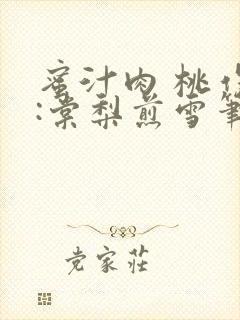 蜜汁肉桃作
:棠梨煎雪筆
党家莊